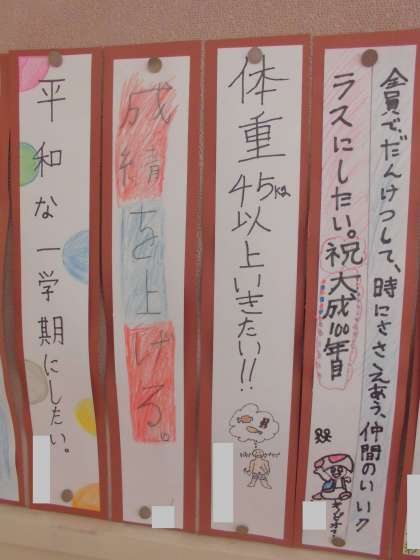 全員で、だんけつして、時にささえあう、仲間のいいク
ラスにしたい。祝大成100年目
キノピオ
体重45kg以上いきたい!!
成績を上げる。
平和な一学期にしたい。